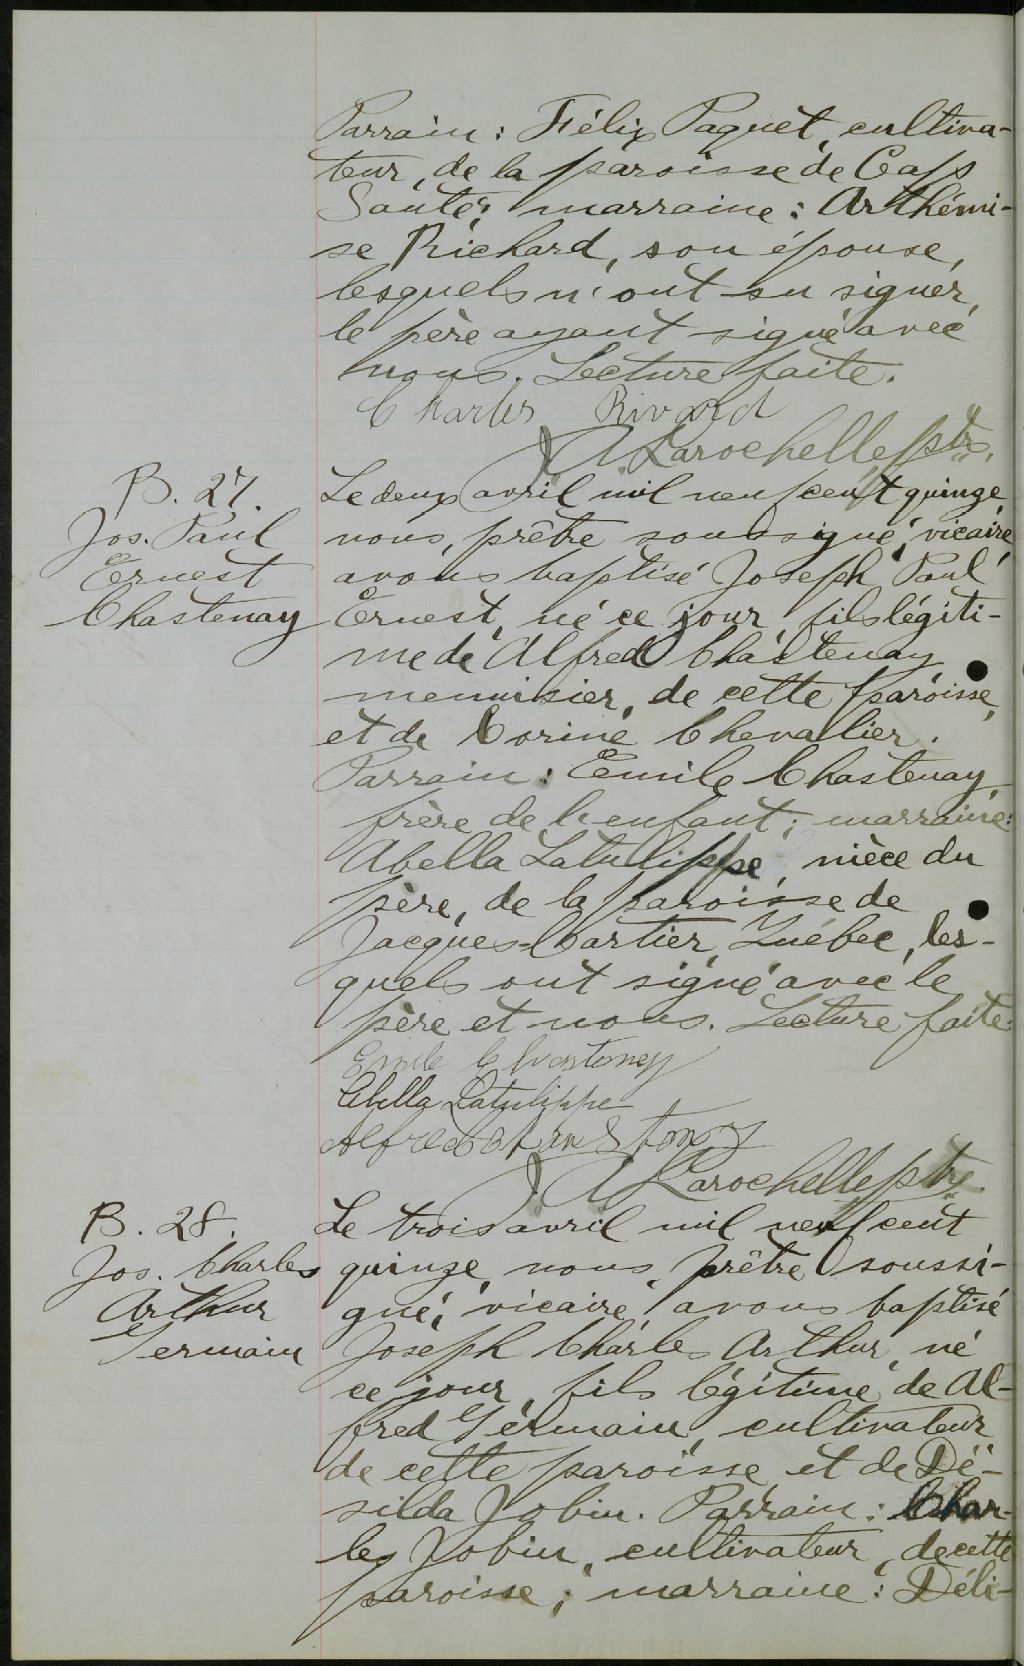 Parrain : Félix Paquet, cultiva-
teur, de la paroisse de Cap
Santé; marraine : Arthémi-
se Richard, son épouse,
lesquels n'ont su signer,
le père ayant signé avec
nous. Lecture faite.
Charles Rivard
J. A. Larochelle ptre.
B. 27.
Jos. Paul
Ernest
Chastenay
Le deux avril mil neuf cent quinze,
nous, prêtre soussigné, vicaire,
avons baptisé Joseph Paul
Ernest, né ce jour, fils légiti-
me de Alfred Chastenay,
menuisier, de cette paroisse,
et de Corine Chevallier.
Parrain : Emile Chastenay,
frère de l'enfant; marraine:
Abella Latulippe, nièce du
père, de la paroisse de
Jacques-Cartier, Québec, les-
quels ont signé avec le
père et nous. Lecture faite.
Emile Chastenay
Abella Latulippe
Alfred Chanstoney
J. A. Larochelle ptre.
B. 28.
Jos. Charles
Arthur
Germain
Le trois avril mil neuf cent
quinze, nous, prêtre soussi-
gné, vicaire, avons baptisé
Joseph Charles Arthur, né
ce jour, fils légitime de Al-
fred Germain, cultivateur
de cette paroisse et de Dé-
silda Jobin. Parrain : Char-
les Jobin, cultivateur, de cette
paroisse; marraine : Déli-